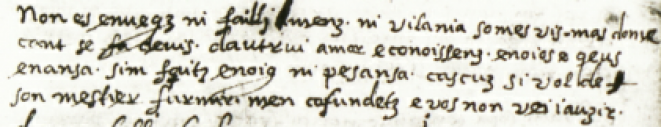 Non es enuegz ni failli menz. ni vilania so mes vis. mas donne
cant se fa devis. dautrui amor e conoissenz. enoios e qeus
enansa. sim faitz enoig ni pesansa. cascus si vol de
son mestier furmir. men cofundetz e vos non vei iauzir.